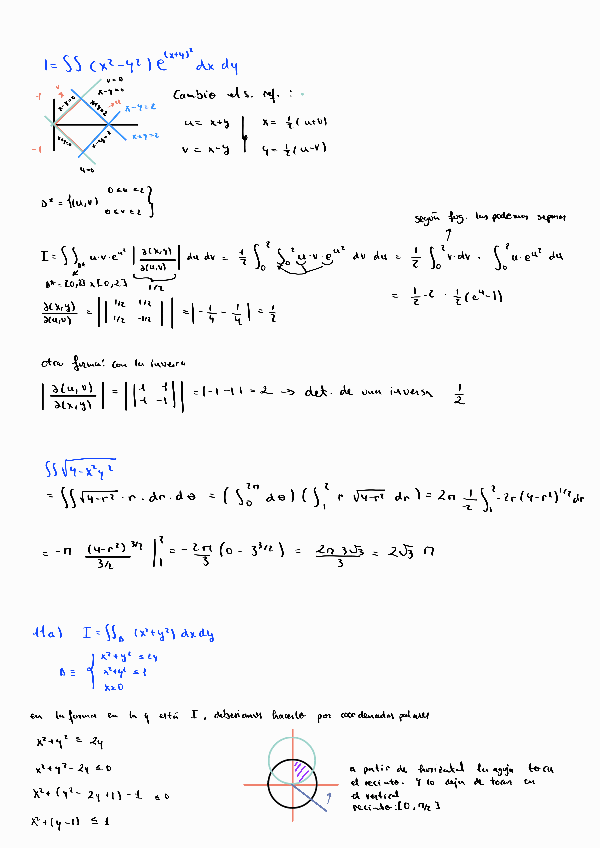 I = ∬ (x²-y²) e^(x+y)² dx dy
v=0
x-y=0
x-y=2
x+y=2
u=0
-1
-1
Cambio el s. ref. :
u = x+y | x = ½(u+v)
v = x-y | y = ½(u-v)
D* = {(u,v) 0≤u≤2 0≤v≤2}
según fug. las podemos separar
I = ∬_D* u·v·e^u² |∂(x,y)/∂(u,v)| du dv = ½ ∫₀² ∫₀² u·v·e^u² dv du = ½ ∫₀² v·dv · ∫₀² u·e^u² du
D* = [0,2] x [0,2] 1/2
= ½ · 2 · ½ (e⁴-1)
∂(x,y)/∂(u,v) = || 1/2 1/2 1/2 -1/2 || = |-¼ - ¼| = ½
otra forma: con la inversa
|∂(u,v)/∂(x,y)| = || 1 1 1 -1 || = |-1-1| = 2 → det. de una inversa ½
∬ √4-x²y²
= ∬ √4-r² · r · dr · dθ = (∫₀^2π dθ) (∫₁² r √4-r² dr) = 2π ½ ∫₁² -2r (4-r²)^1/2 dr
= -π (4-r²)^3/2 / 3/2 |₁² = - 2π/3 (0 - 3^3/2) = 2π 3√3 / 3 = 2√3 π
11a) I = ∬_D (x²+y²) dx dy
D ≡ { x²+y² ≤ 2y
x²+y² ≤ 1
x≥0
en la forma en la q está I, deberiamos hacerlo por coordenadas polares
x²+y² ≤ 2y
x²+y²-2y ≤ 0
x²+(y²-2y+1)-1 ≤ 0
x²+(y-1) ≤ 1
a partir de horizontal la aguja toca
el recinto. Y lo deja de tocar en
el vertical
recinto: [0, π/2]